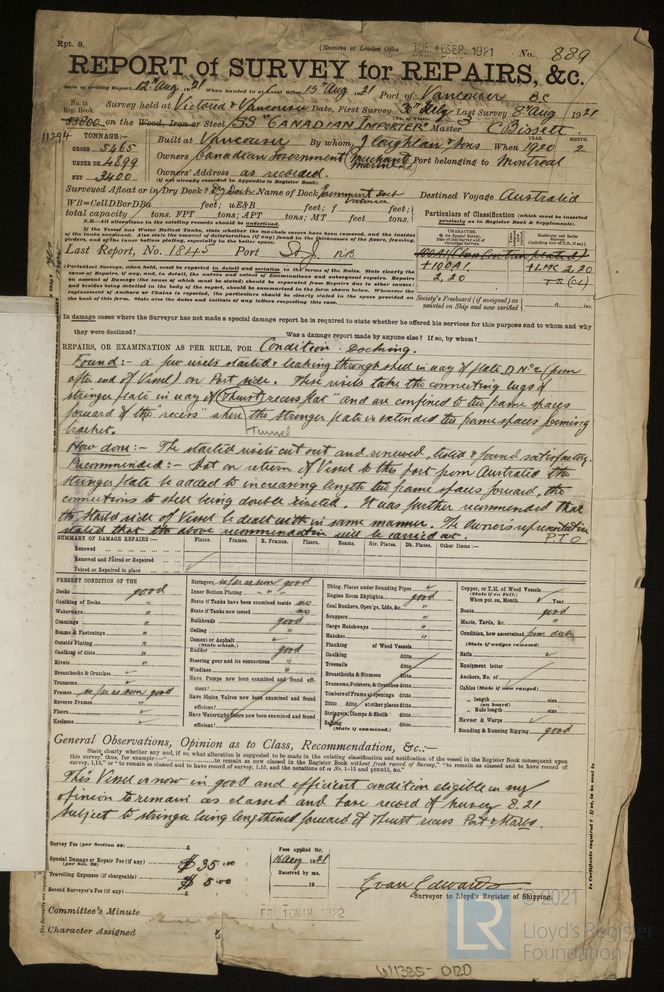 Rpt. 8.
(Received at London Office TUE. 6 SEP. 1921
No. 889
REPORT of SURVEY for REPAIRS, &c.
Date of writing Report 12th Aug 1921 When handed in at Local Office 15th Aug 1921 Port of Vancouver B.C.
No. in Reg. Book. Survey held at Victoria & Vancouver Date, First Survey 30 July Last Survey 8th Aug 1921
on the Wood, Iron or Steel SS "CANADIAN IMPORTER" Master C. Bissett
11294
TONNAGE:—
GROSS 5465
UNDER DK. 4899
NET 3400
Built at Vancouver By whom J Coughlan & Sons When 1920 MONTH. 2
Owners Canadian Government (Merchant Marine Ltd) Port belonging to Montreal
Owners' Address as recorded.
(if not already recorded in Appendix to Register Book).
Surveyed Afloat or in Dry Dock? Dry Dock Name of Dock Government Dock Victoria Destined Voyage Australia
WB=CellDBorDBa feet; uE&B feet; f feet;
total capacity tons. FPT tons; APT tons; MT feet tons.
N.B.—All alterations in the existing records should be underlined.
Particulars of Classification (which must be inserted precisely as in Register Book & Supplements).
Last Report, No. 1845 Port
+100A1.
2,20
+LMC 2,20
TS (CL)
Society's Freeboard (if assigned) as painted on Ship and now verified
In damage cases where the Surveyor has not made a special damage report he is required to state whether he offered his services for this purpose and to whom and why
they were declined? Was a damage report made by anyone else? If so, by whom?
REPAIRS, OR EXAMINATION AS PER RULE, FOR Condition. Docking.
Found:- a few rivets started & leaking through shell in way of plate D No 2 (from
after end of Vessel) on Port side. These rivets take the connecting lugs of
stringer plate in way of (Thrust) recess flat and are confined to two frame spaces
forward of the recess where the stringer plate is extended two frame spaces forming
bracket. Tunnel
How done:- The started rivets cut out and renewed, tested & found satisfactory.
Recommended:- That on return of Vessel to this port from Australia the
stringer plate be added to increasing length two frame spaces forward, the
connections to shell being double riveted. It was further recommended that
the Starbd side of Vessel be dealt with in same manner. The Owner's representative
stated that the above recommendation will be carried out. P.T.O
SUMMARY OF DAMAGE REPAIRS:— Plates. Frames. R. Frames. Floors. Beams. Str. Plates. Dk. Plates. Other Items:—
Renewed
Removed and Faired or Repaired
Faired or Repaired in place
PRESENT CONDITION OF THE
Decks good
Caulking of Decks "
Waterways "
Coamings "
Beams & Fastenings "
Outside Plating "
Caulking of ditto "
Rivets "
Breasthooks & Crutches
Transoms
Frames as far as seen good
Reverse Frames "
Floors
Keelsons
Stringers as far as seen good
Inner Bottom Plating " "
State if Tanks have been examined inside no
State if Tanks now tested no
Bulkheads good
Ceiling "
Cement or Asphalt
(State which.)
Rudder good
Steering gear and its connections "
Windlass "
Have Pumps now been examined and found efficient?
Have Sluice Valves now been examined and found efficient?
Have Watertight doors now been examined and found efficient?
Dblng. Plates under Sounding Pipes
Engine Room Skylights good
Coal Bunkers, Open'gs, Lids, &c. "
Scuppers "
Cargo Hatchways "
Hatches "
Planking of Wood Vessels
Caulking ditto
Treenails ditto
Breasthooks & Stemson ditto
Transoms, Pointers, & Crutches ditto
Timbers of Frame at openings ditto
Ditto ditto at other places ditto
Stringers, Clamps & Shelfs ditto
Salting ditto
(State if examined.)
Copper, or Y.M. of Wood Vessels
(State if on Felt.)
When put on, Month Year
Boats good
Masts, Yards, &c. "
Condition, how ascertained from deck
(State if wedges removed)
Sails
Equipment letter
Anchors, No. of
Cables (State if now ranged)
" length (on board)
" Rule length
Hawser & Warps
Standing & Running Rigging good
General Observations, Opinion as to Class, Recommendation, &c.:—
This Vessel is now in good and efficient condition eligible in my
opinion to remain as classed and have record of Survey 8.21
subject to stringer being lengthened forward of Thrust recess Port & Starbd.
Survey Fee (per Section 28) £
Special Damage or Repair Fee (if any) $ 35.00
(per Sec. 28)
Travelling Expenses (if chargeable) $ 5.00
Second Surveyor's Fee (if any) £
Fees applied for,
16 Aug 1921
Received by me,
19
Evan Edwards
Surveyor to Lloyd's Register of Shipping.
Committee's Minute FRI. 10 MAR. 1922
Character Assigned
© 2021
LR
Lloyd's Register
Foundation
W1335-020